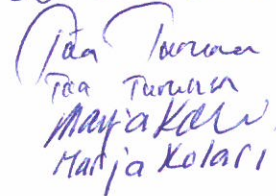 Tea Turunen
Tea Turunen
Marja Kolari
Marja Kolari